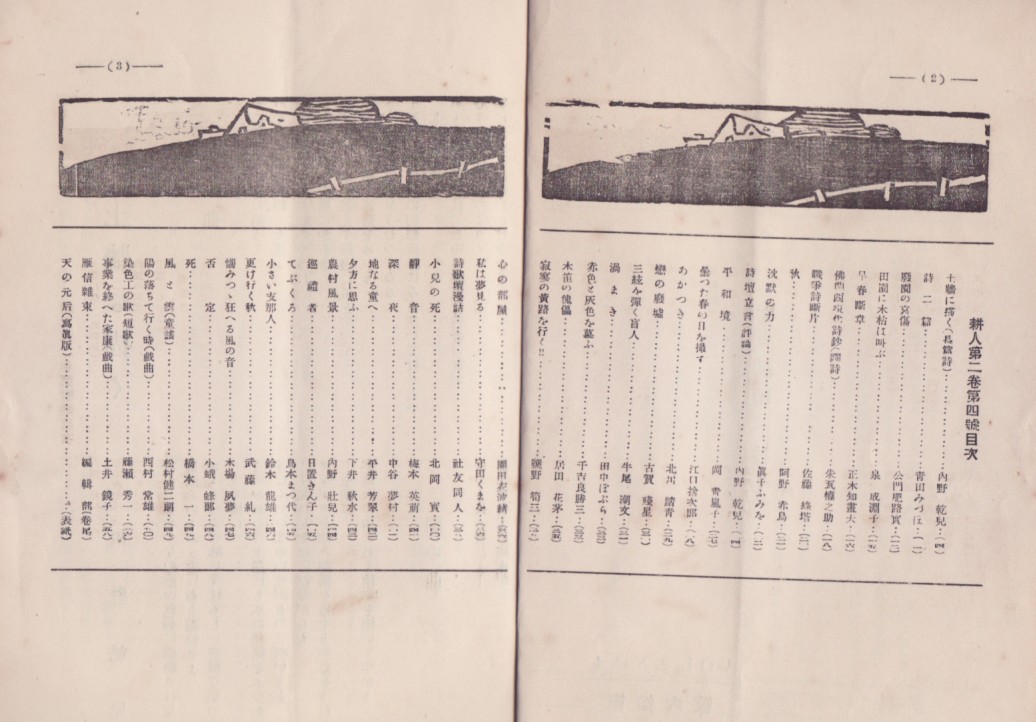 (2)
耕人第二卷第四號目次
土牆に描く(長篇詩)……内野 乾兒…(四)
詩二篇……青田みづほ…(一一)
廢園の哀傷……公門肥路實…(一二)
田園に木枯は叫ぶ……泉 成淵子…(一五)
早春斷章……正木知畫夫…(一六)
佛蘭西現代詩鈔(譯詩)……朱瓦樓之助…(一八)
職季詩斷片……佐藤 綠塔…(二一)
秋……阿野 赤鳥…(二一)
沈默の力……眞子ふみを…(二二)
詩壇立言(評論)……内野 乾兒…(一四)
平和境……岡 青嵐子…(二七)
曇つた春の日を撮す……江口捨次郎…(二八)
あかつき……北川 靖青…(二九)
戀の廢墟……古賀 殘星…(三〇)
三絃を彈く盲人……牛尾 潮文…(三一)
渦まき……田中ぽぷら…(三三)
赤色と灰色を墓ふ……千古良勝三…(三三)
木笛の傀儡……居田 花茅…(三五)
寂寞の黄路を行く!!……槇野 筍三…(三六)
(3)
心の部屋……(三六)
私は夢見る……守田くまを…(三六)
詩歌壇漫話……社友同人…(三七)
小兒の死……北岡 實…(四〇)
靜音……梅本 英萠…(四一)
深夜……中谷 夢村…(四一)
地なる童へ……平井 芳翠…(四二)
夕方に思ふ……下井 秋水…(四三)
農村風景……内野 壯兒…(四四)
巡禮者……日置きん子…(四五)
てぶくろ……鳥本まつ代…(四五)
小さい支那人……鈴木 龍雄…(四六)
更け行く秋……武藤 糺…(四六)
惱みつゝ狂へる風の音……木場 夙夢…(四七)
否定……小蛾 修郞…(四八)
死……橋本 一…(四九)
風と雲(童謠)……松村健二朗…(四九)
陽の落ちて行く時(戲曲)……西村 常雄…(五〇)
染色工の歌(短歌)……藤瀨 秀一…(五九)
事業を終へた家康(戲曲)……土井 鏡子…(五八)
雁信雜束……編輯部(卷尾)
天の元后(寫眞版)……(表紙)